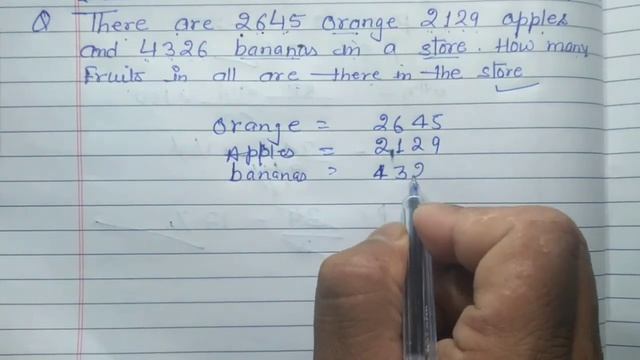 Q There are 2645 orange 2129 apples
and 4326 bananas in a store. How many
Fruits in all are there in the store
Orange = 2645
Apples = 2129
bananas = 432